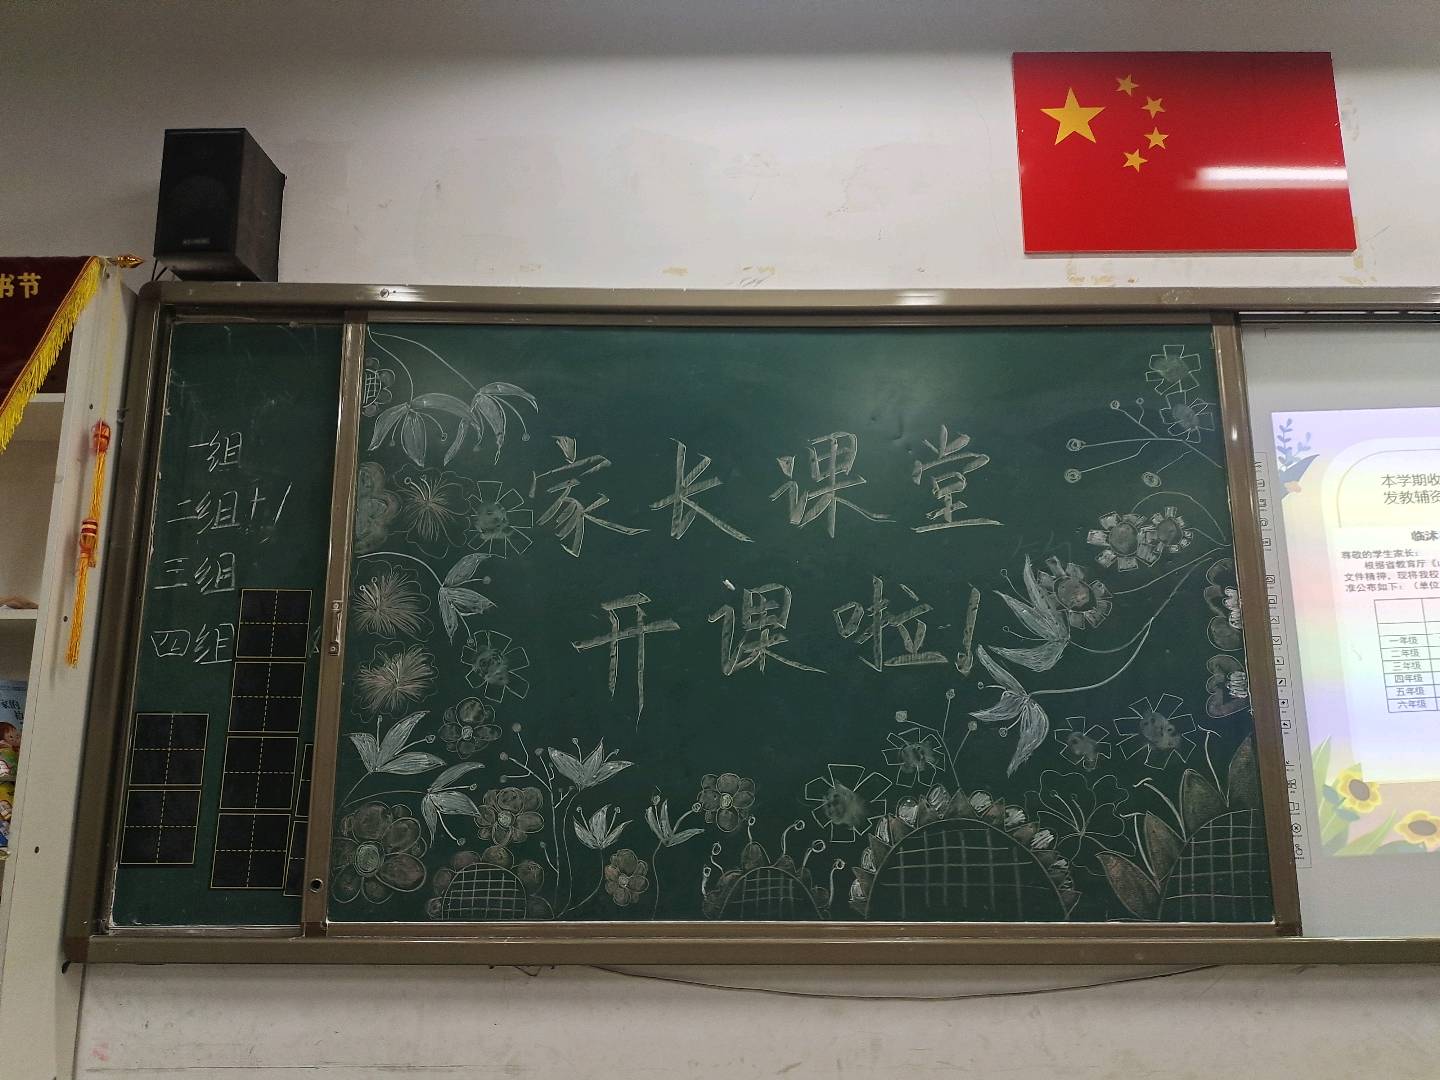 书节
一组
二组+1
三组
四组
家长课堂
开课啦!
本学期收
发教辅资
临沭
尊敬的学生家长:
根据省教育厅《
文件精神,现将我校
准公布如下:(单位
一年级
二年级
三年级
四年级
五年级
六年级